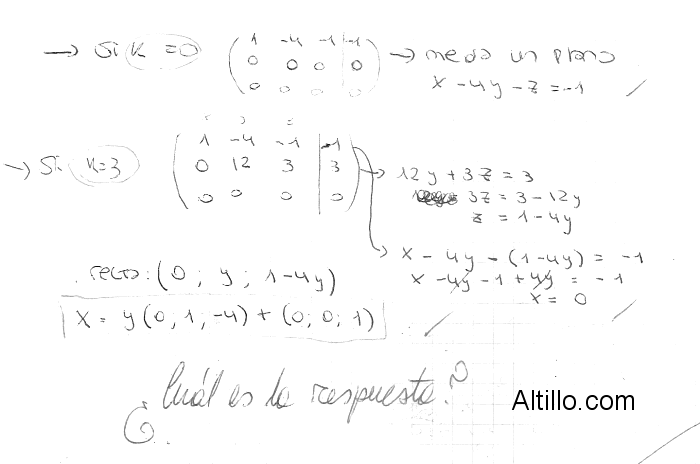 → Si k=0 ( 1 -4 -1 | -1 → me da un plano
0 0 0 | 0 x - 4y - z = -1
0 0 0 | 0 )
→ Si k=3 ( 1 -4 -1 | -1
0 12 3 | 3 → 12y + 3z = 3
0 0 0 | 0 ) 3z = 3 - 12y
z = 1 - 4y
x - 4y - (1-4y) = -1
x - 4y - 1 + 4y = -1
x = 0
recta: (0 ; y ; 1-4y)
X = y(0; 1; -4) + (0; 0; 1)
¿Cuál es la respuesta?
Altillo.com